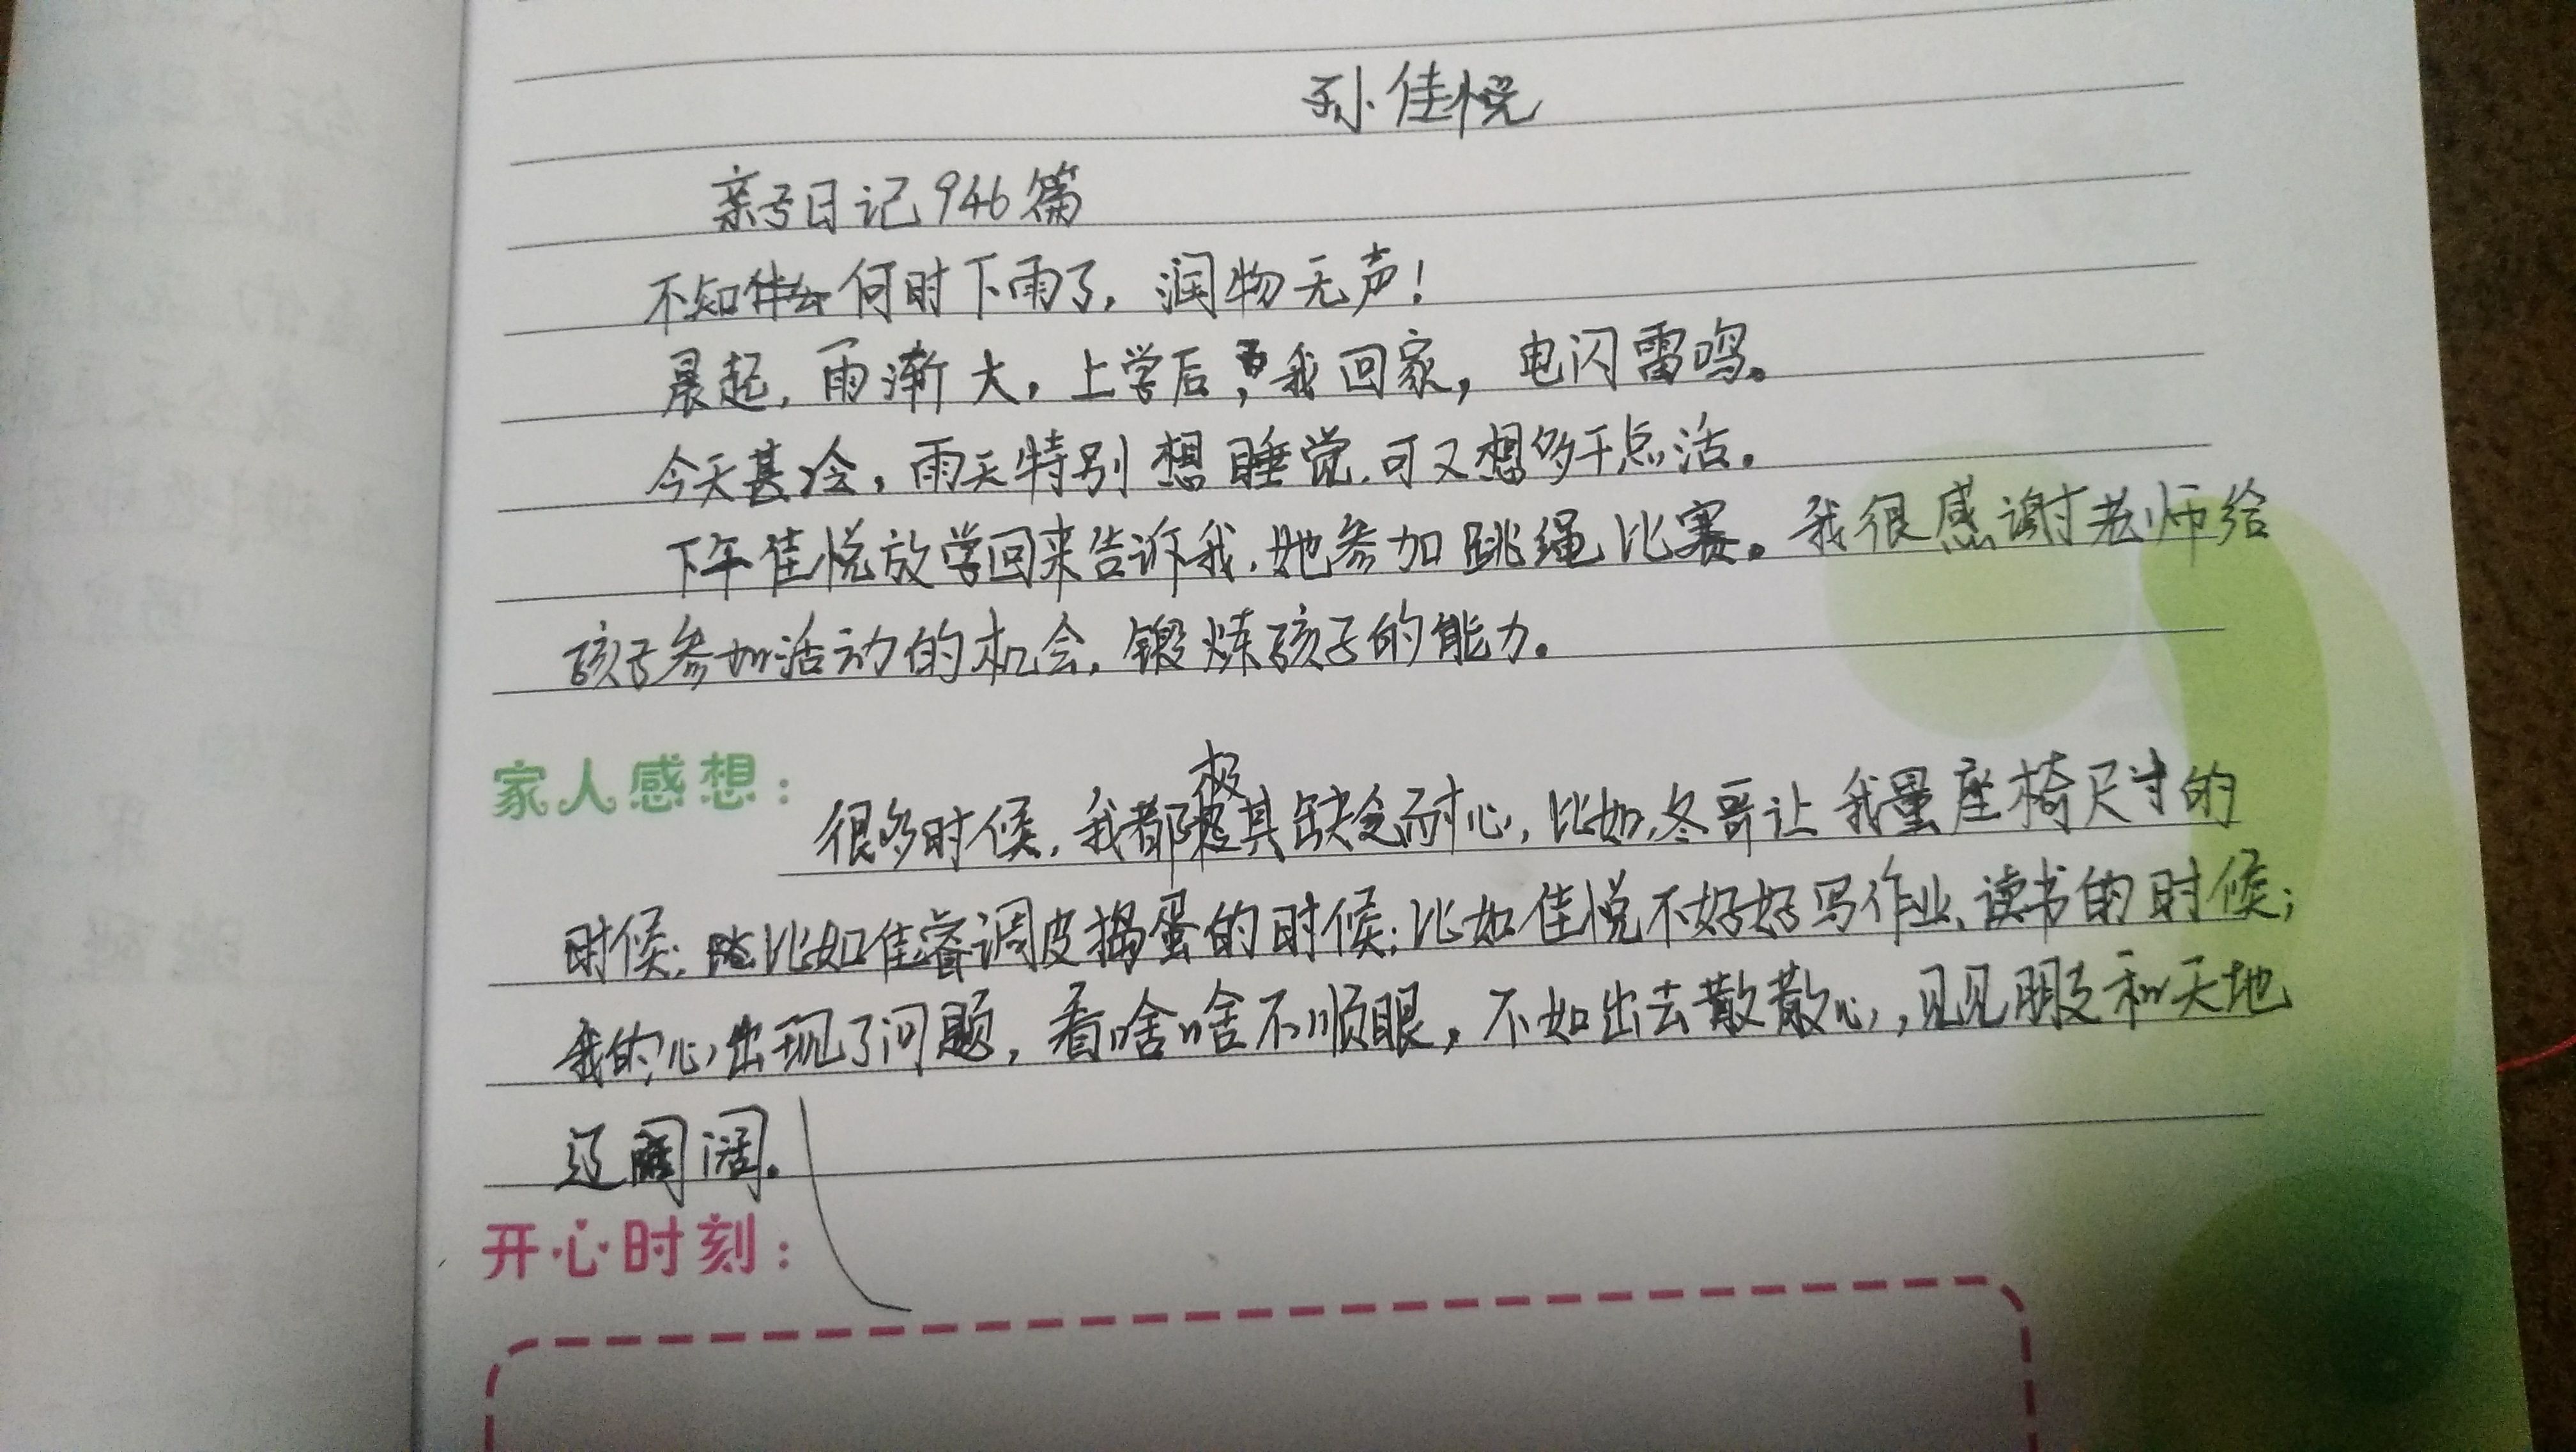 孙佳悦
亲子日记946篇
不知何时下雨了，润物无声！
晨起，雨渐大，上学后，我回家，电闪雷鸣。
今天甚冷，雨天特别想睡觉，可又想多干点活。
下午佳悦放学回来告诉我，她参加跳绳比赛。我很感谢老师给
孩子参加活动的机会，锻炼孩子的能力。
家人感想：
很多时候，我都极其缺乏耐心，比如，冬哥让我量座椅尺寸的
时候；比如佳睿调皮捣蛋的时候；比如佳悦不好好写作业、读书的时候；
我的心出现了问题，看啥啥不顺眼，不如出去散散心，见见朋友和天地
辽阔。
开心时刻：